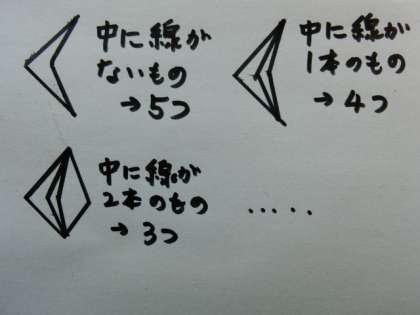 中に線が
ないもの
→5つ
中に線が
1本のもの
→4つ
中に線が
2本のもの
→3つ
.....